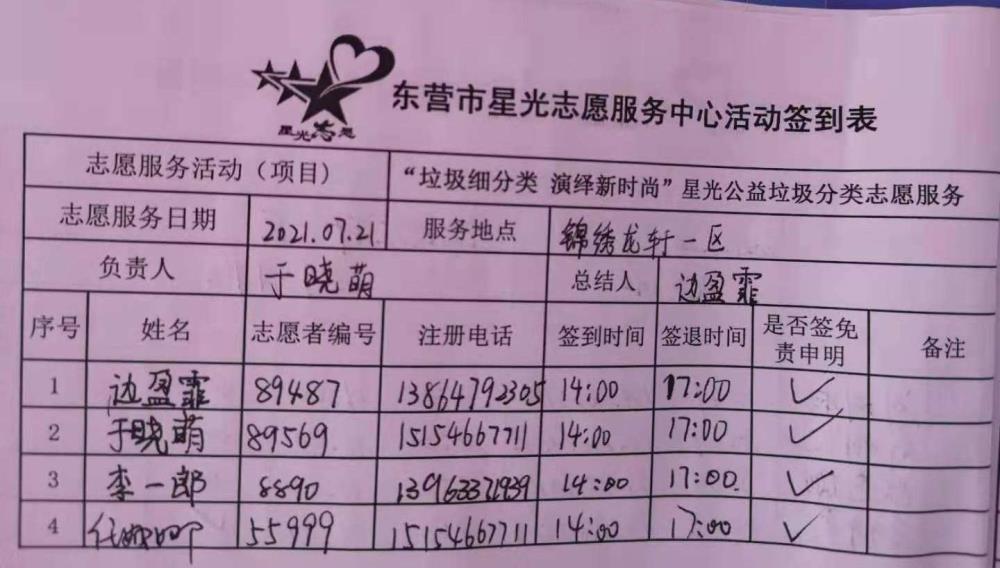 星光志愿
东营市星光志愿服务中心活动签到表
志愿服务活动（项目） “垃圾细分类 演绎新时尚”星光公益垃圾分类志愿服务
志愿服务日期 2021.07.21 服务地点 锦绣龙轩一区
负责人 于晓萌 总结人 边盈霏
序号 姓名 志愿者编号 注册电话 签到时间 签退时间 是否签免责申明 备注
1 边盈霏 89487 13864792305 14:00 17:00 ✓
2 于晓萌 89569 15154667711 14:00 17:00 ✓
3 李一郎 8890 13963371939 14:00 17:00 ✓
4 55999 15154667711 14:00 17:00 ✓